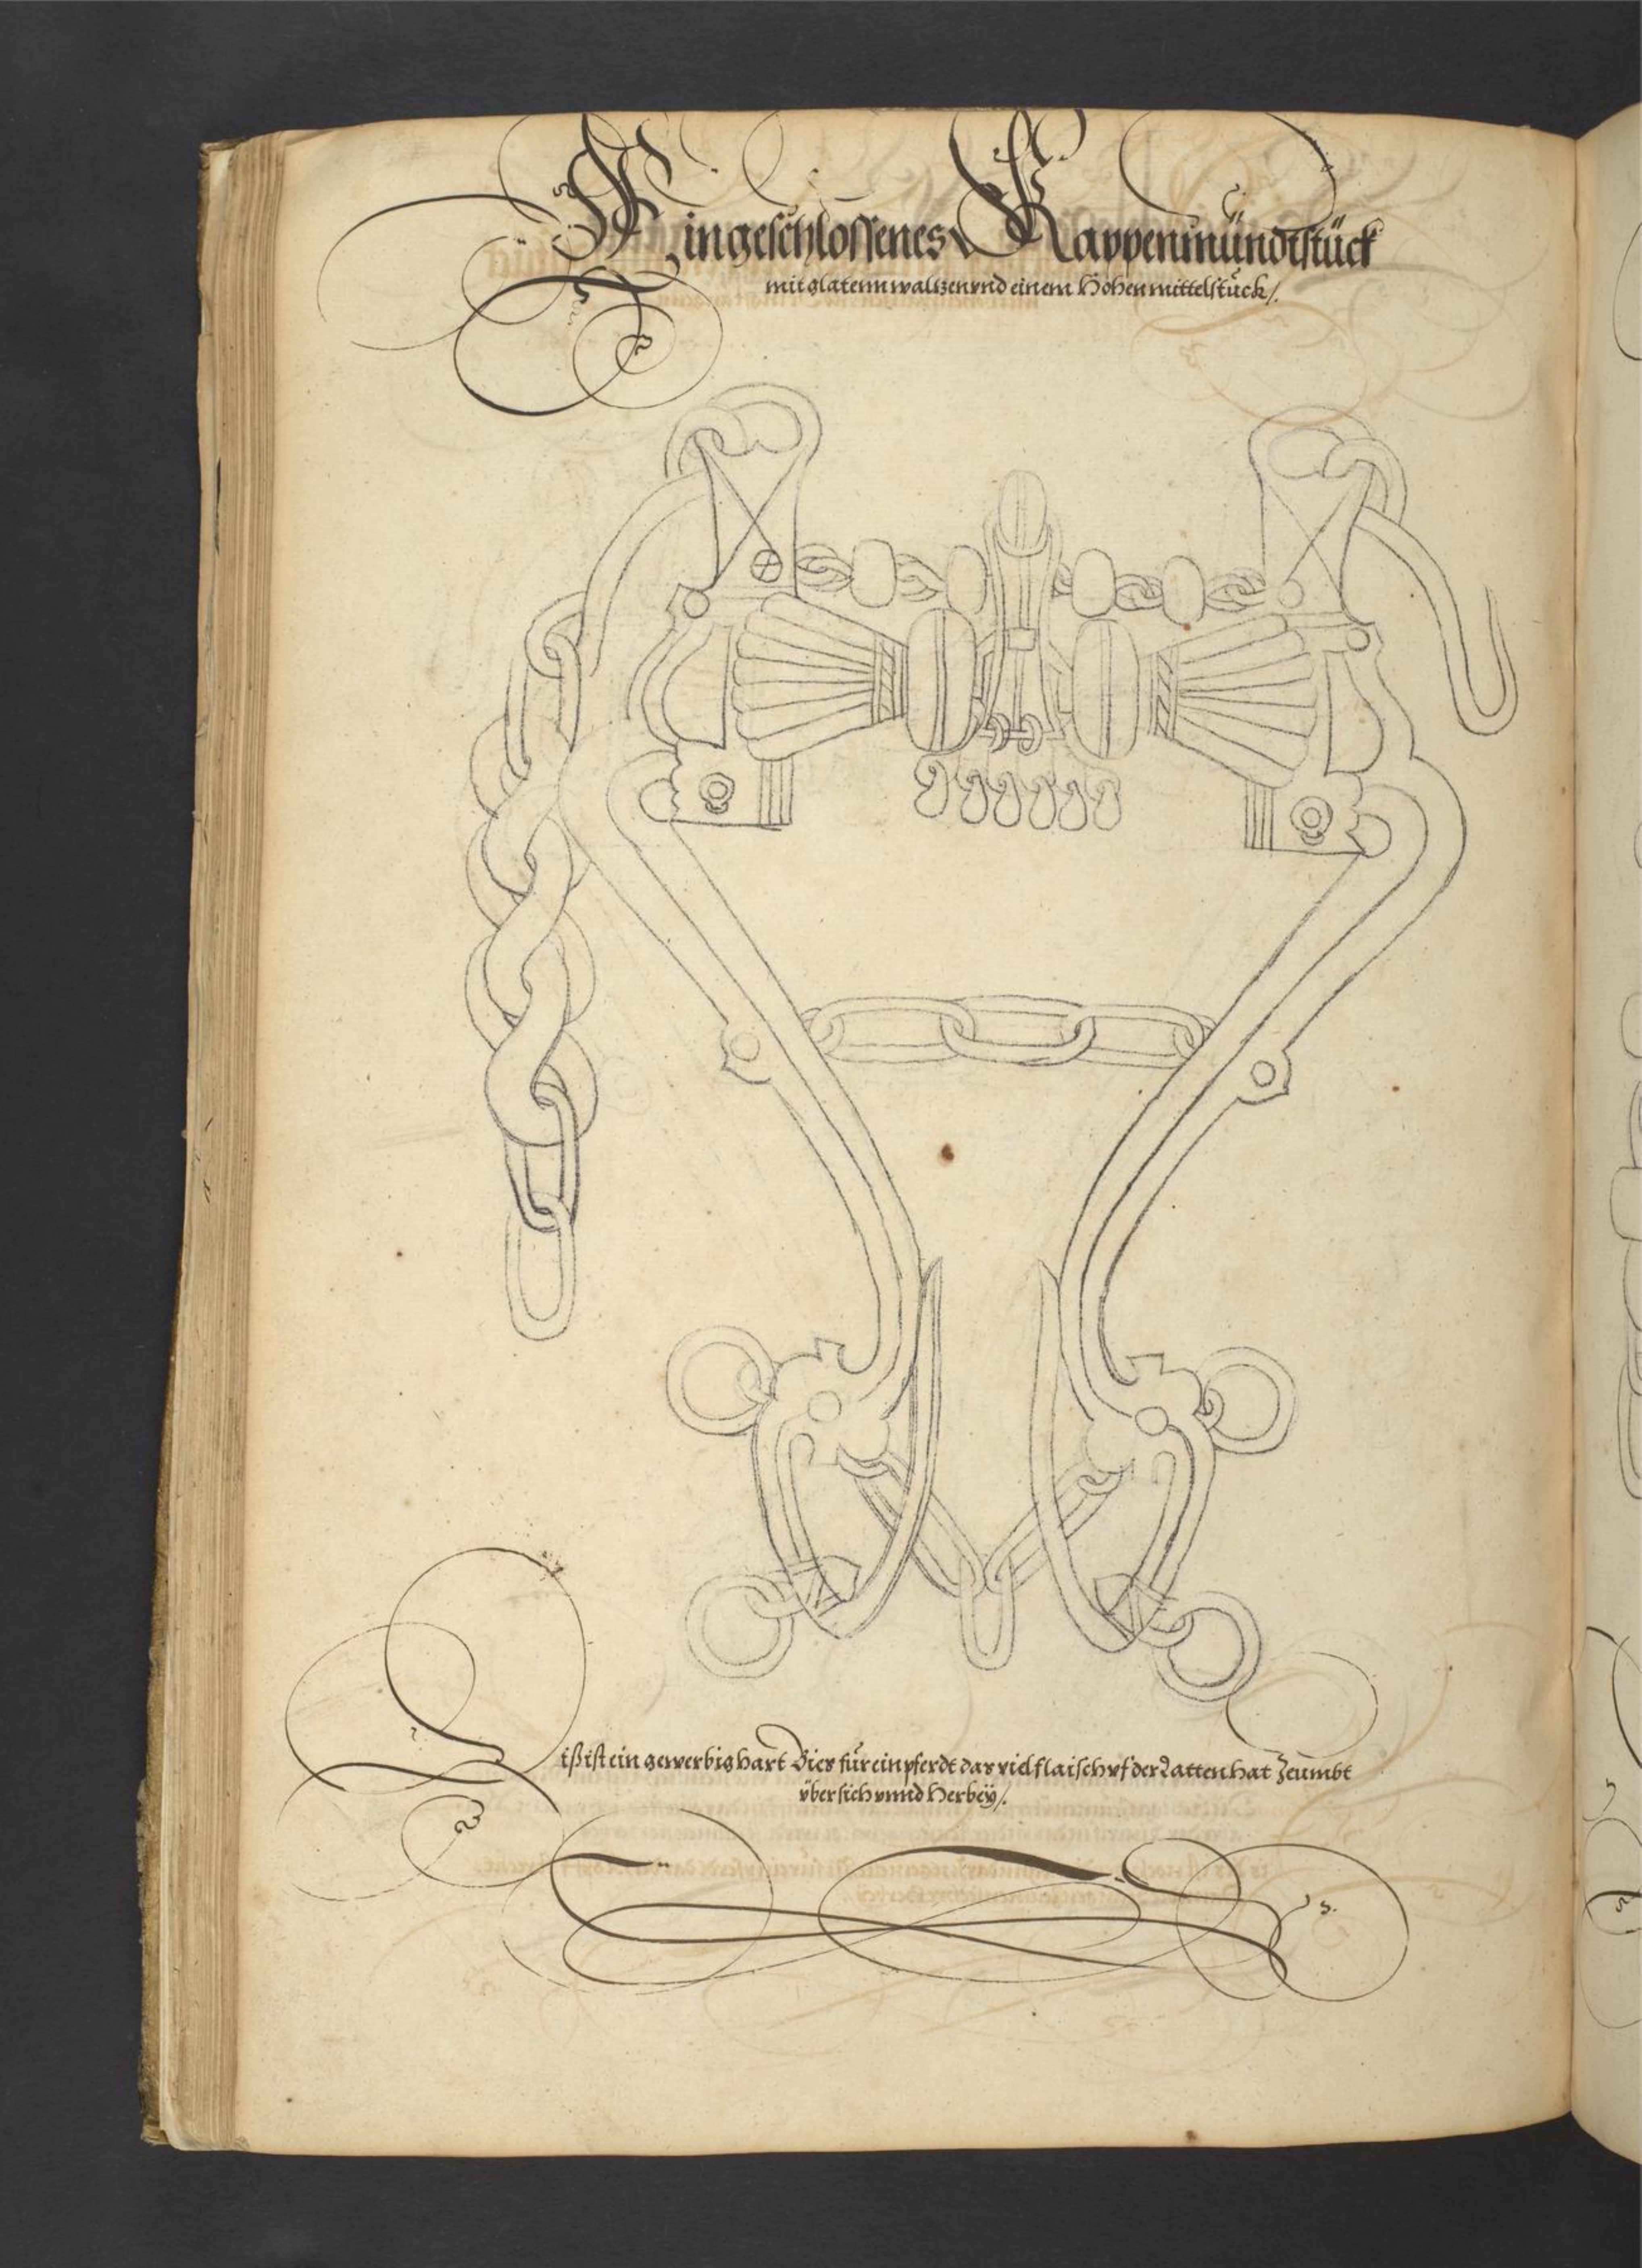 Ein geschlossenes Kappenmündtstück
mit glatenn waltzen vnd einem Hohen mittelstuck /.
Diß ist ein gewerbig hart Bies für ein pferdt das viel flaisch vf der Latten hat Zeumbt
über sich vnnd Herbey /.